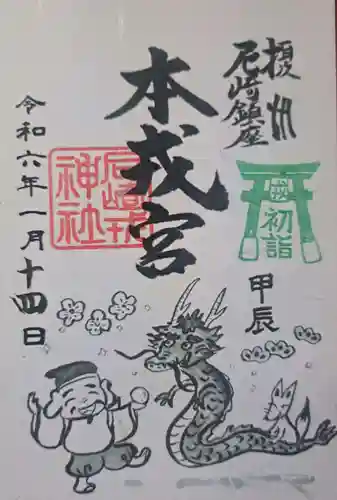 摂州
尼崎鎮座
本戎宮
尼崎戎
神社
初詣
甲辰
令和六年一月十四日